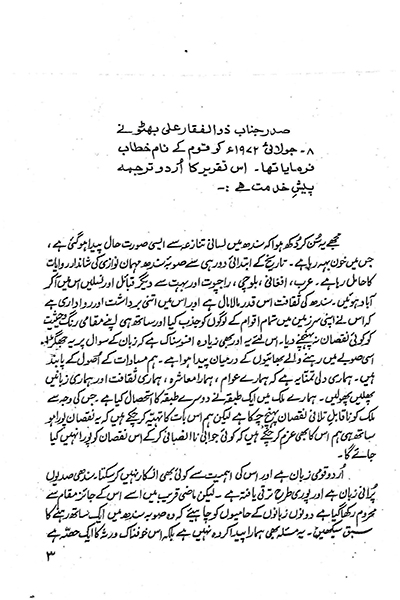 صدر جناب ذوالفقار علی بھٹو نے
۸۔ جولائی ۱۹۷۲ء کو قوم کے نام خطاب
فرمایا تھا۔ اس تقریر کا اُردو ترجمہ
پیشِ خدمت ہے :-
مجھے یہ سُن کر دُکھ ہوا کہ سندھ میں لسانی تنازعہ سے ایسی صورت حال پیدا ہو گئی ہے ،
جس میں خون بہہ رہا ہے۔ تاریخ کے ابتدائی دور ہی سے صوبہ سندھ مہمان نوازی کی شاندار روایات
کا حامل رہا ہے۔ عرب، افغانی، بلوچی، راجپوت اور بہت سے دیگر قبائل اور نسلیں اس میں آ کر
آباد ہوئیں۔ سندھ کی ثقافت اس قدر مالا مال ہے اور اس میں اتنی برداشت اور رواداری ہے
کہ اس نے اپنی سرزمین میں تمام اقوام کے لوگوں کو جذب کیا اور ساتھ ہی اپنے مقامی رنگ و حیثیت
کو کوئی نقصان نہ پہنچنے دیا۔ اس لئے یہ اور بھی زیادہ افسوسناک ہے کہ زبان کے سوال پر یہ جھگڑا
اسی صوبے میں رہنے والے بھائیوں کے درمیان پیدا ہوا ہے۔ ہم مساوات کے اُصول کے پابند
ہیں۔ ہماری دلی تمنا یہ ہے کہ ہمارے عوام ، ہمارا معاشرہ ، ہماری ثقافت اور ہماری زبانیں
پھلیں پھولیں۔ ہمارے ملک میں ایک طبقہ نے دوسرے طبقہ کا استحصال کیا ہے، جس کی وجہ سے
ملک کو ناقابلِ تلافی نقصان پہنچ چکا ہے لیکن ہم اس بات کا تہیّہ کر چکے ہیں کہ یہ نقصان پورا ہو
ساتھ ہی ہم اس کا بھی عزم کر چکے ہیں کہ کوئی جوابی ناانصافی کر کے اس نقصان کو پورا نہیں کیا
جائے گا۔
اُردو قومی زبان ہے اور اس کی اہمیت سے کوئی بھی انکار نہیں کر سکتا۔ سندھی صدیوں
پُرانی زبان ہے اور پوری طرح ترقی یافتہ ہے۔ لیکن ماضی قریب میں اسے اس کے جائز مقام سے
محروم رکھا گیا ہے دونوں زبانوں کے حامیوں کو چاہیئے کہ وہ صوبہ سندھ میں ایک ساتھ رہنے کا
سبق سیکھیں۔ یہ مسئلہ بھی ہمارا پیدا کردہ نہیں ہے بلکہ اس خوفناک ورثہ کا ایک حصّہ ہے
۳